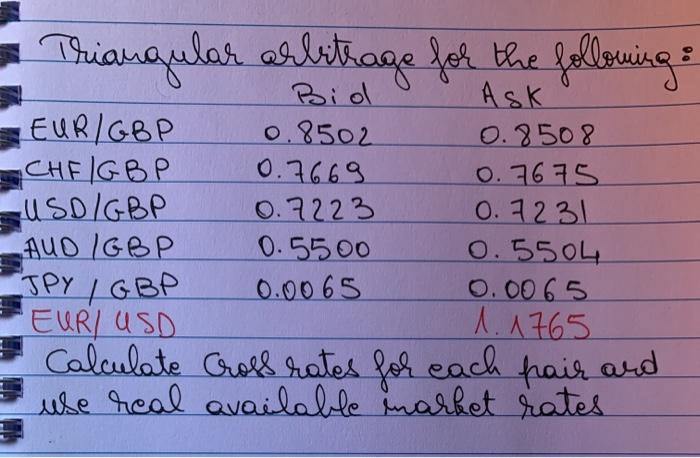 Triangular arbitrage for the following:
Bid ASK
EUR/GBP 0.8502 0.8508
CHF/GBP 0.7669 0.7675
USD/GBP 0.7223 0.7231
AUD/GBP 0.5500 0.5504
JPY/GBP 0.0065 0.0065
EUR/USD 1.1765
Calculate Cross rates for each pair and
use real available market rates